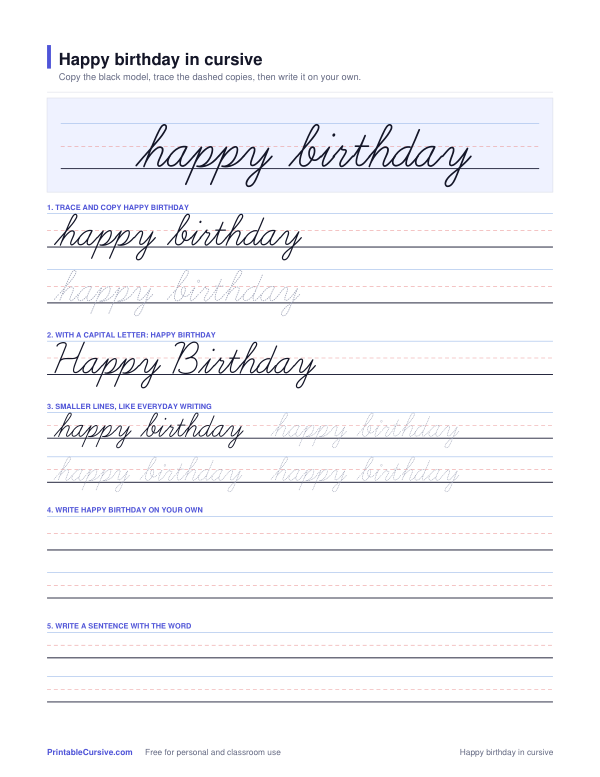 Happy birthday in cursive
Copy the black model, trace the dashed copies, then write it on your own.
happy birthday
1. TRACE AND COPY HAPPY BIRTHDAY
happy birthday
happy birthday
2. WITH A CAPITAL LETTER: HAPPY BIRTHDAY
Happy Birthday
3. SMALLER LINES, LIKE EVERYDAY WRITING
happy birthday happy birthday
happy birthday happy birthday
4. WRITE HAPPY BIRTHDAY ON YOUR OWN
5. WRITE A SENTENCE WITH THE WORD
PrintableCursive.com Free for personal and classroom use Happy birthday in cursive